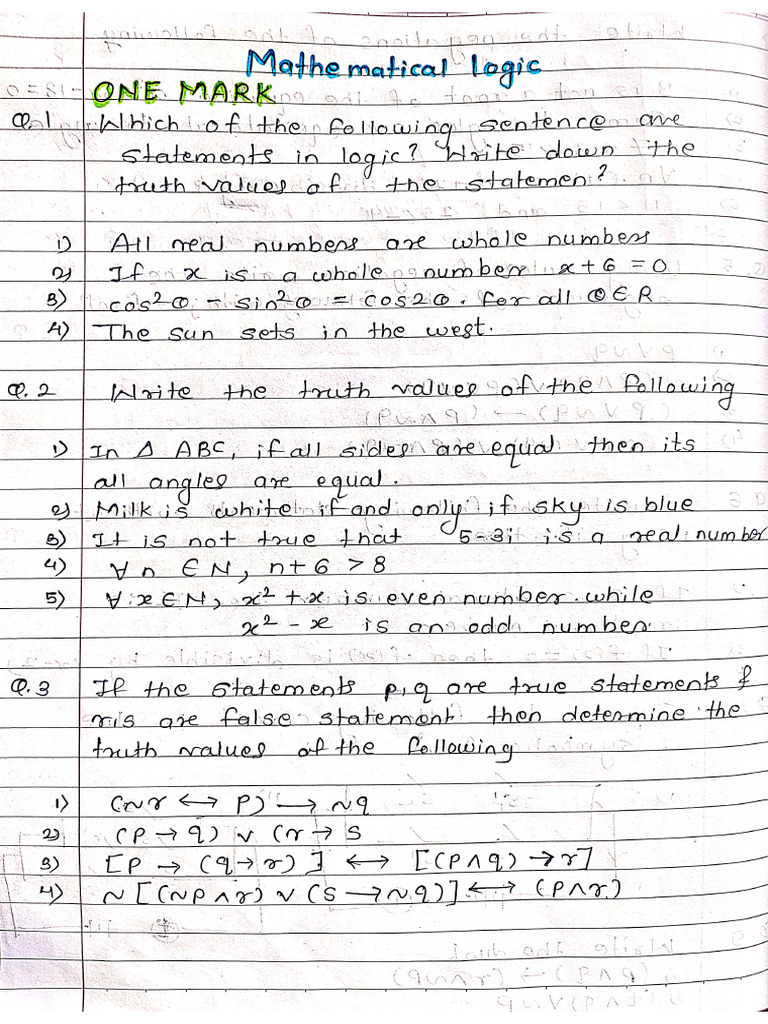 Mathematical logic
ONE MARK
Q.1 Which of the following sentence are
statements in logic? Write down the
truth values of the statemen?
1) All real numbers are whole numbers
2) If x is a whole number x+6 = 0
3) cos²θ - sin²θ = cos2θ. for all θ ∈ R
4) The sun sets in the west.
Q.2 Write the truth values of the following
1) In Δ ABC, if all sides are equal then its
all angles are equal.
2) Milk is white if and only if sky is blue
3) It is not true that 5-3i is a real number
4) ∀ n ∈ N, n+6 > 8
5) ∀ x ∈ N, x² + x is even number while
x² - x is an odd number.
Q.3 If the statements p, q are true statements &
r,s are false statement then determine the
truth values of the following
1) (~r ↔ p) → ~q
2) (p → q) ∨ (r → s
3) [p → (q → r)] ↔ [(p ∧ q) → r]
4) ~[(~p ∧ r) ∨ (s → ~q)] ↔ (p ∧ r)